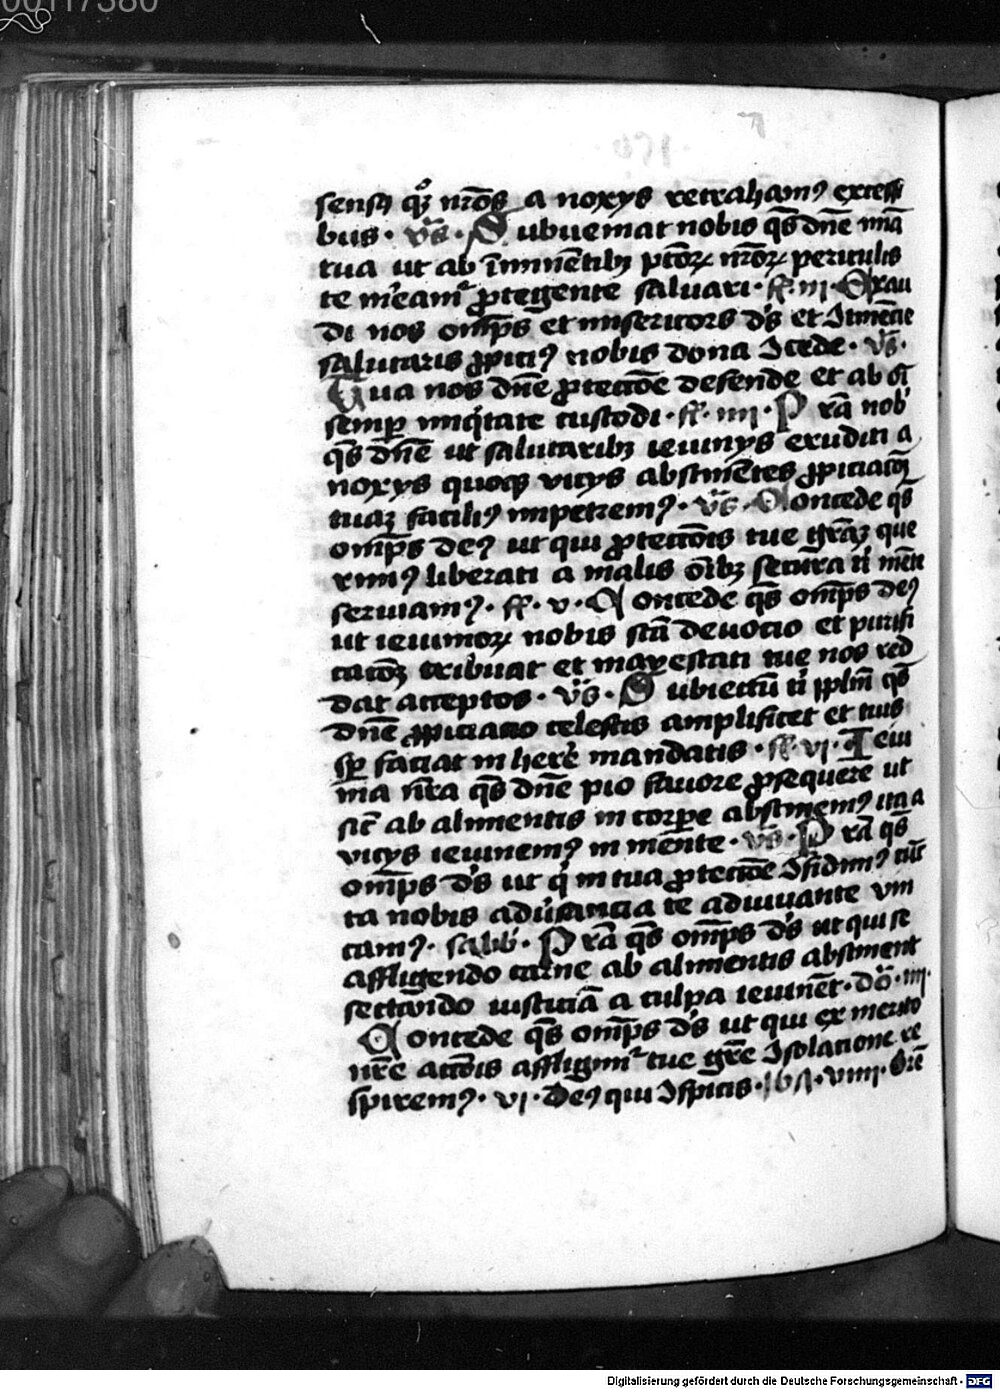 00117380
sensꝯ qꝫ nr̄os a noxys retrahamꝰ excessi
bus · vs̄ · Subueniat nobis qs̄ dn̄e mīa
tua ut ab īminētibꝫ pcc̄oꝝ nr̄oꝝ periculis
te m̄eamur ꝓtegente saluari · ff · iij · Exau
di nos om̄ps et misericors ds̄ et ꝯtinēcie
salutaris ꝓpiciꝰ nobis dona ꝯcede · vs̄ ·
Tua nos dn̄e ꝓteccōe defende et ab oī
semꝑ iniqͥtate custodi · ff · iiij · Pr̄a nob
qs̄ dn̄e ut salutaribꝫ ieiunys eruditi a
noxys quoqꝫ vicys abstinētes ꝓpiciacōꝫ
tuaꝫ faciliꝰ impetremꝰ · vs̄ · Concede qs̄
om̄ps deꝰ ut qui ꝓteccōis tue gr̄aꝫ que
rimꝰ liberati a malis oībꝫ secura ti mēte
seruiamꝰ · ff · v · Concede qs̄ om̄ps deꝰ
ut ieiunioꝝ nobis sc̄a deuocio et purifi
cacōꝫ tribuat et maiestati tue nos red
dat acceptos · vs̄ · Subiectū ti ppl̄m qs̄
dn̄e ꝓpiciacio celestis amplificet et tuis
sꝑ faciat inherē mandatis · ff · vi · Ieiu
nia nr̄a qs̄ dn̄e pio fauore ꝓsequere ut
sic̄ ab alimentis in corꝑe abstinemꝰ ita a
vicys ieiunemꝰ in mente · vs̄ · Pr̄a qs̄
om̄ps ds̄ ut qͥ in tua ꝓteccōe ꝯfidimꝰ cūc
ta nobis adūsancia te adiuuante vin
camꝰ · sabb · Pr̄a qs̄ om̄ps ds̄ ut qui se
affligendo carne ab alimentis abstinent
sectando iusticiā a culpa ieiunēt · do · iiij ·
Concede qs̄ om̄ps ds̄ ut qui ex merito
nr̄e accōis affligimur tue gr̄e ꝯsolacione re
spiremꝰ · vi · Deꝰ qui ꝯspicis · viiij · Orē
Digitalisierung gefördert durch die Deutsche Forschungsgemeinschaft - DFG